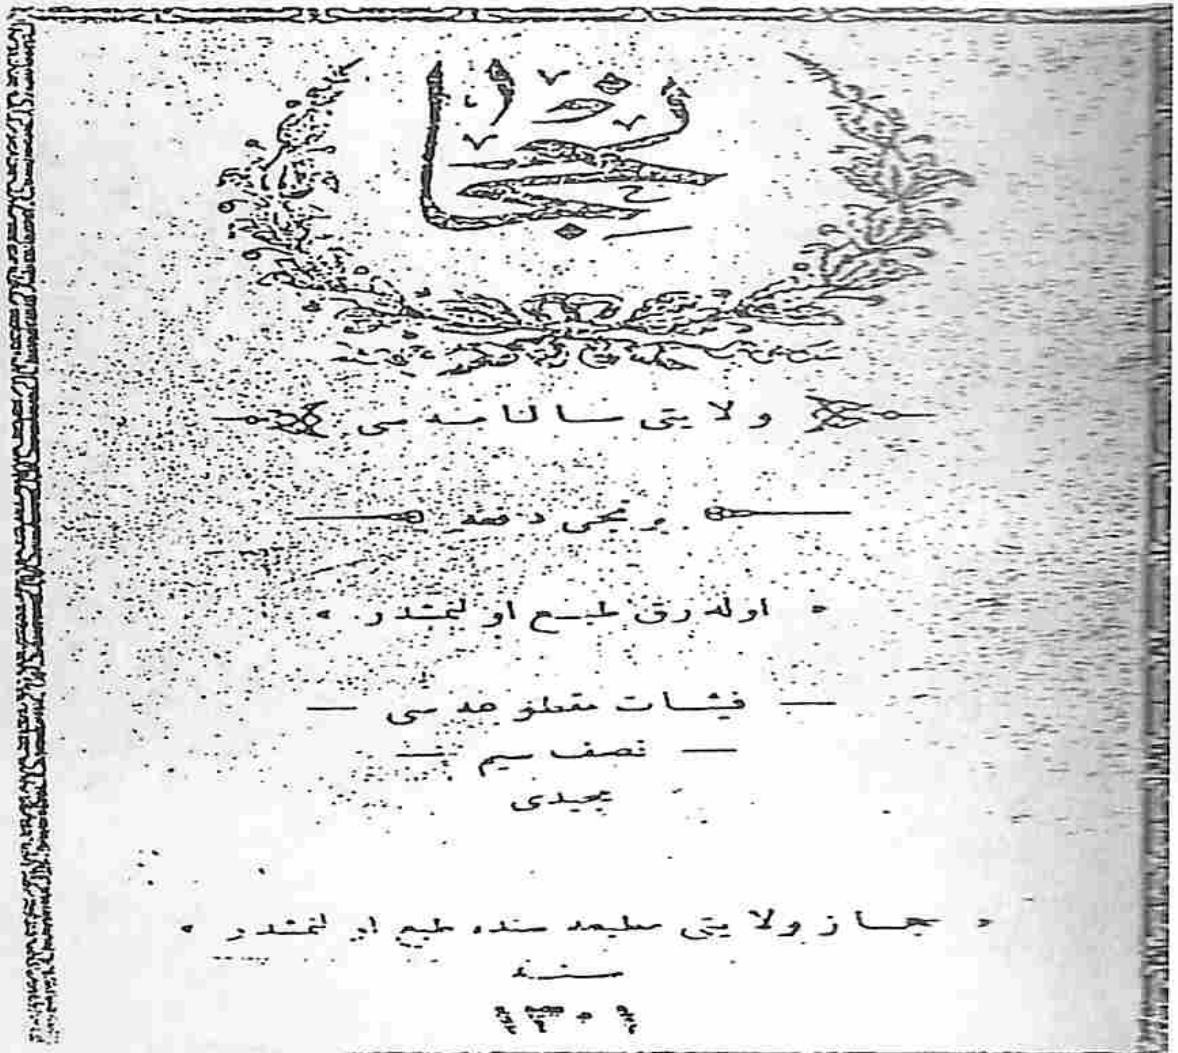 حجاز
ولايتى سالنامه سى
برنجى دفعه
اوله رق طبع اولنمشدر
فيئات مقطوعه سى
نصف سيم
مجيدى
حجاز ولايتى مطبعه سنده طبع اولنمشدر
سنه
١٣٠١